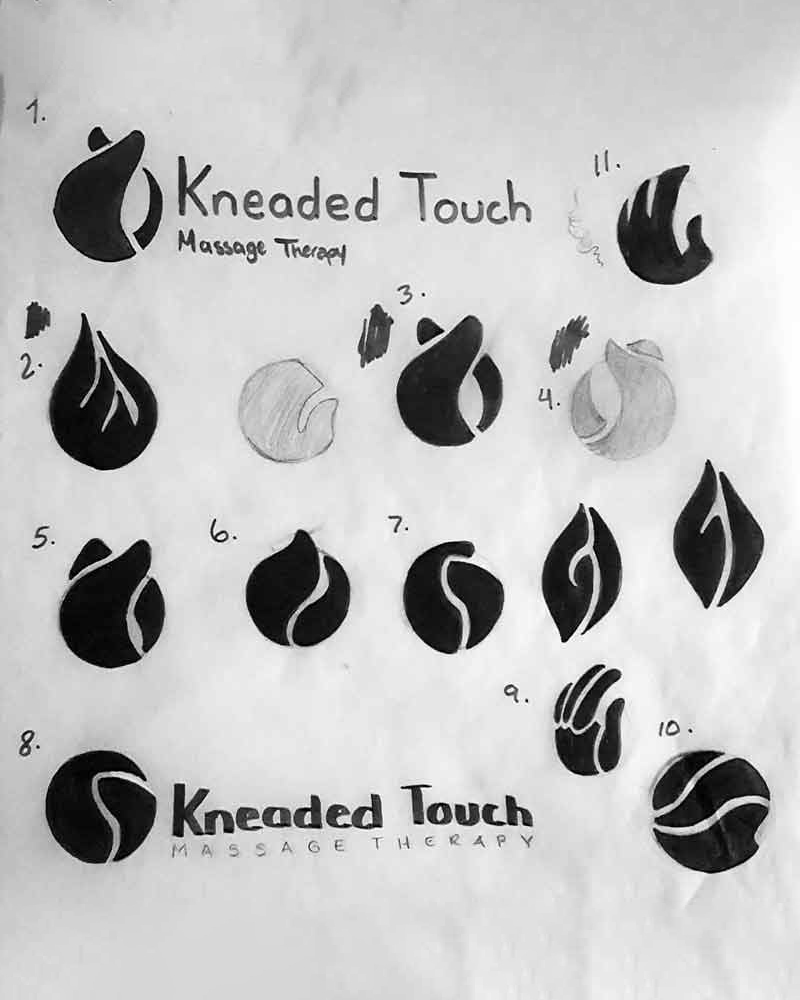 1.
Kneaded Touch
Massage Therapy
11.
2.
3.
4.
5.
6.
7.
8.
Kneaded Touch
MASSAGE THERAPY
9.
10.